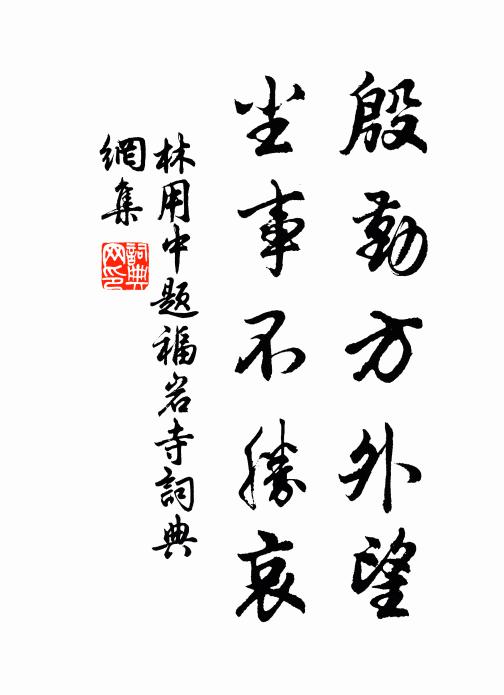 殷勤方外望
尘事不勝哀
林用中题福岩寺詞典
網集
詞典網印